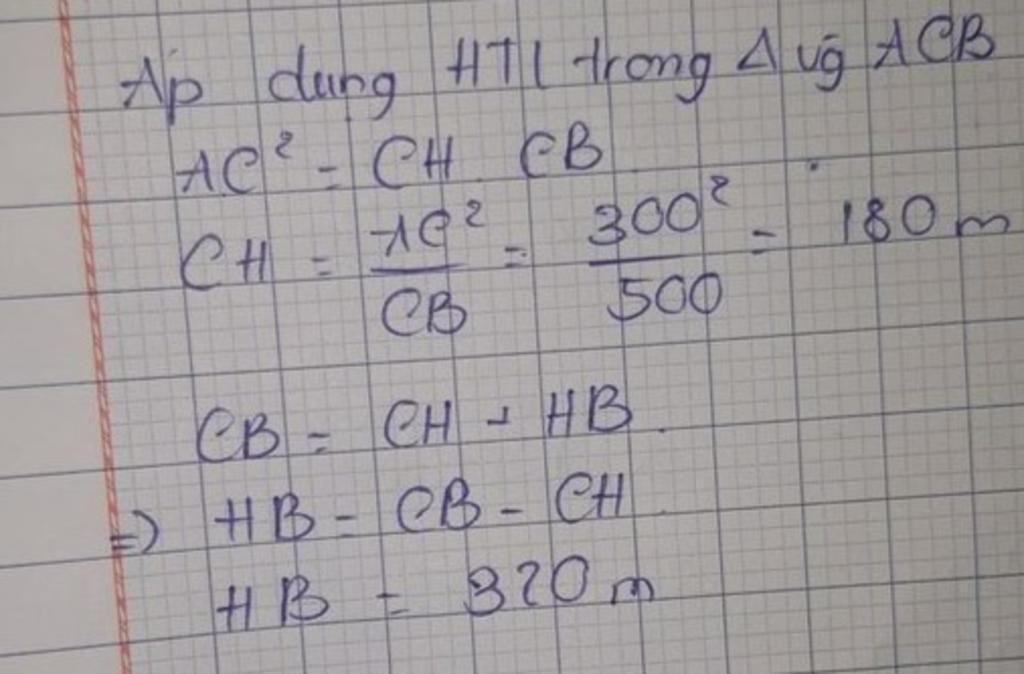 Áp dụng HTL trong Δ vg ACB
AC² = CH . CB
CH = AC²/CB = 300²/500 = 180 m
CB = CH + HB
=> HB = CB - CH
HB = 320 m